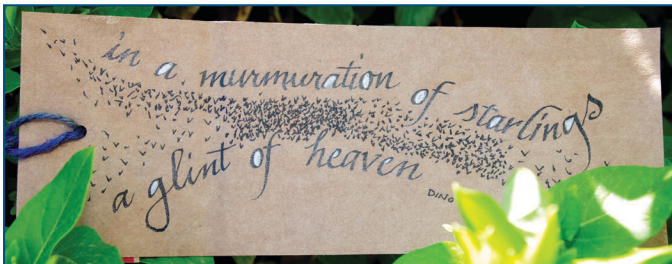 in a murmuration of starlings
a glint of heaven
DINO